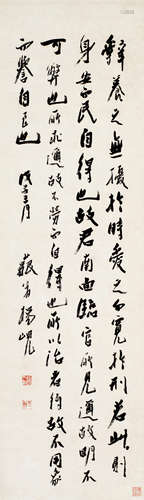 養之無擾於時愛之勿寬於刑若此則
身安而民自得也故君南面臨官所見邇故明不
可弊也所求邇故不勞而自得也所以治者約故不用眾
而譽自至也 戊子三月 藐翁楊峴